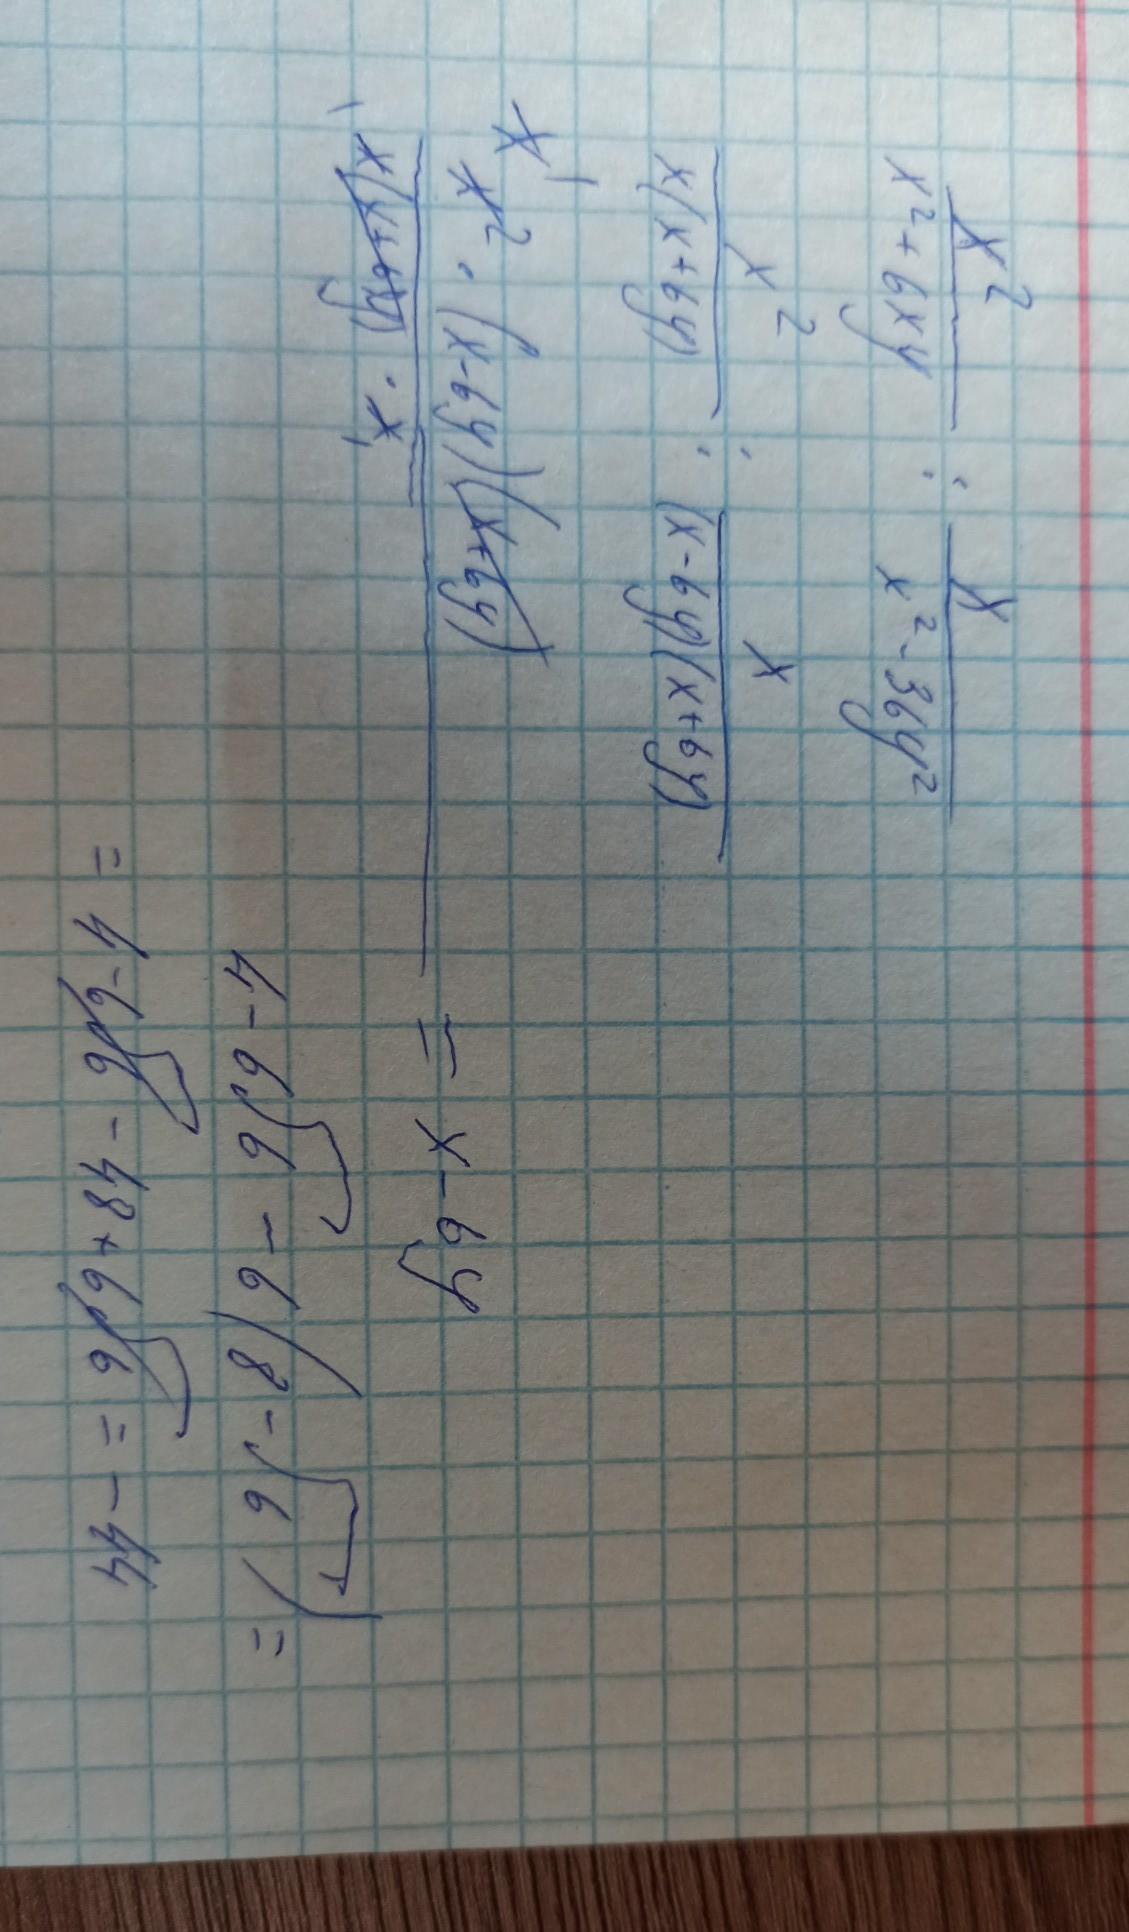 x² / (x² + 6xy) : x / (x² - 36y²)
x² / (x(x + 6y)) : x / ((x - 6y)(x + 6y))
x¹
x² · (x - 6y)(x + 6y) / (x(x + 6y) · x) = x - 6y
1 1
4 - 6√6 - 6(8 - √6) =
= 4 - 6√6 - 48 + 6√6 = - 44